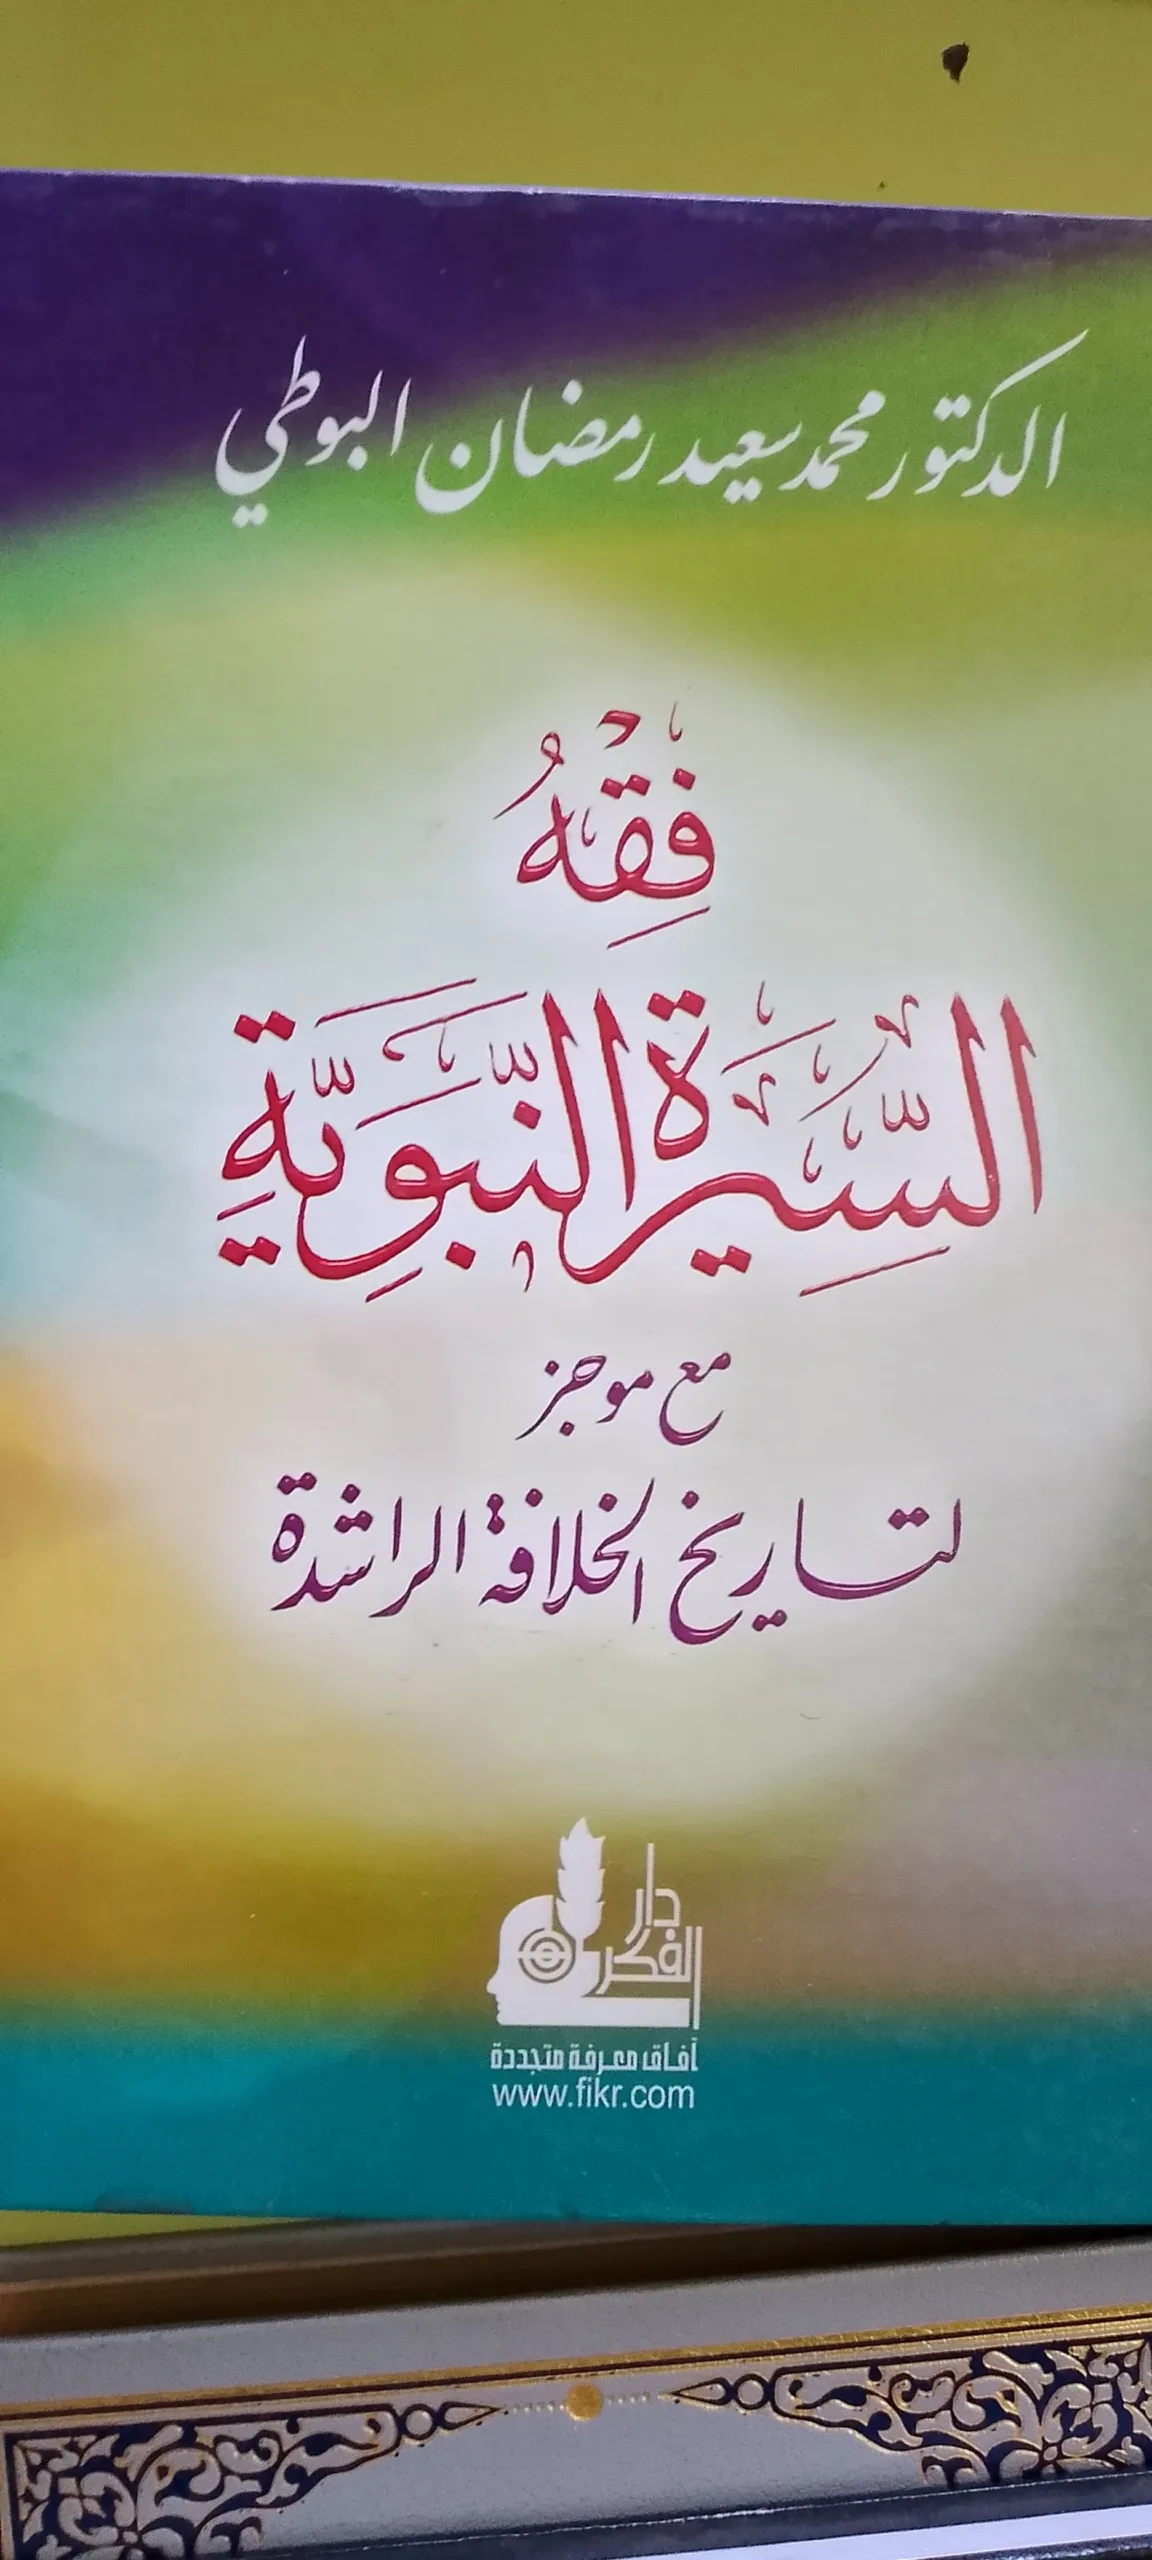 الدكتور محمد سعيد رمضان البوطي
فِقْهُ
السِّيرَةِ النَّبَوِيَّةِ
مع موجز
لتاريخ الخلافة الراشدة
دار
الفكر
آفاق معرفة متجددة
www.fikr.com